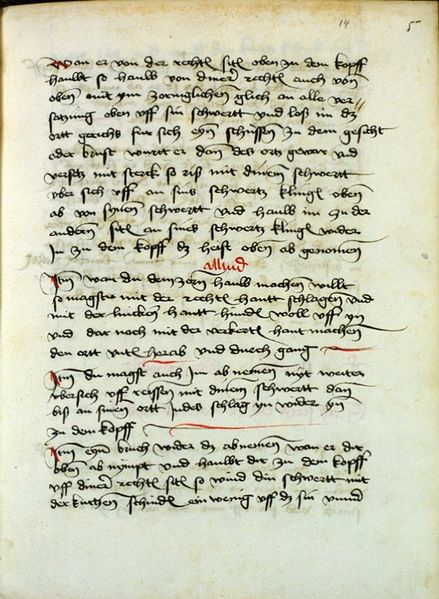 14 5
Wan er von der rechtñ sitñ oben zu dem kopff
haulbt so haulb von diner rechtñ auch von
oben mit ym zorniglichen glich an alle ver-
satzung oben vff sin schwertt vnd los im dz
ortt gerichs fur sich eyn schissen zu dem gesicht
oder brust wurtt er dan des ortz gewar vnd
versetz mit sterck so riß mit dinem schwertt
vber sich vff an sins schwertz klingñ oben
ab von synem schwertt vnd haulb im zu der
andern sitñ an sines schwertz klingñ wider
in zu dem kopff dz heist oben ab genomen
Allud
Itm wan du dem zorn haulb machen willt
so magstu mit der rechtñ hantt schlagen vnd
mit der lincken hantt hindñ woll vff yn
vnd dar noch mit der verkertñ haut machen
den ortt vntñ herab vnd durch gang
Itm du magst auch im ab nemen nyt weiter
vbersich vff reissen mit dinem schwertt dan
bis an sinen ortt Indes schlag yn wider yn
zu dem kopff
Itm eyn bruch wider dz abnemen wan er dir
oben ab nympt vnd haulbt dir zu dem kopff
vff diner rechtñ sitñ so wind din schwertt mit
der kurtzen schnidñ ein wenig vff dz sin vnnd